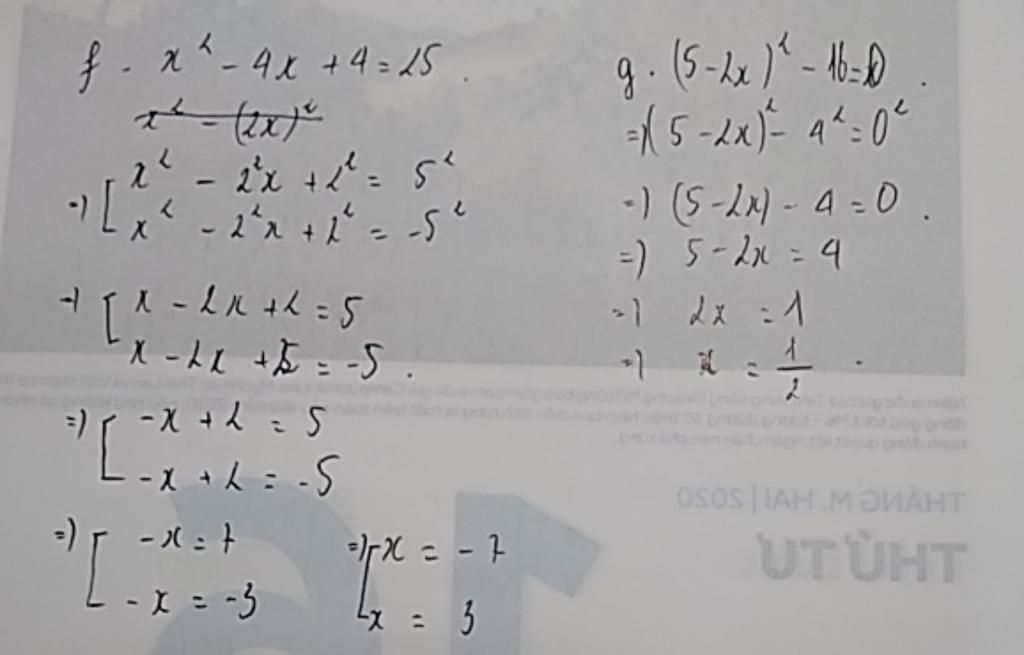 f. x² - 4x + 4 = 25.
x² - (2x)²
=) [ x² - 2²x + 2² = 5²
x² - 2²x + 2² = -5²
=) [ x - 2x + 2 = 5
x - 2x + 2 = -5.
=) [ -x + 2 = 5
-x + 2 = -5
=) [ -x = 7
-x = -3
=) [ x = -7
x = 3
g. (5-2x)² - 16 = 0.
=) (5-2x)² - 4² = 0²
=) (5-2x) - 4 = 0.
=) 5-2x = 4
=) 2x = 1
=) x = 1/2.
THÁNG M. HAI | 2020
THỨ TƯ
16